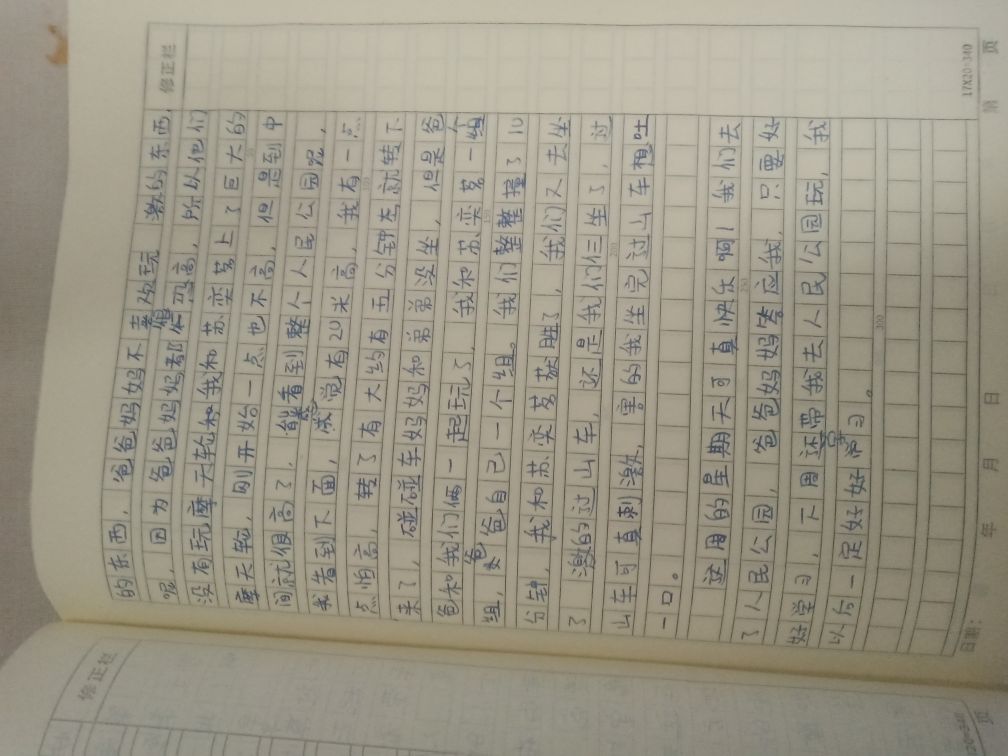 修正栏
的东西，爸爸妈妈不喜欢玩 激的东西，
呢，因为爸爸妈妈都 恐高，所以他们
没有玩摩天轮和我和苏奕茗上了巨大的
摩天轮，刚开始一点也不高，但是到中
间就很高了，能看到整个人民公园呢，
我看到下面，感觉有20米高，我有一点
点怕高，转了有大约有五分钟左 就转下
来了，碰碰车妈妈和弟弟没坐，但是爸
爸和我们俩一起玩了，我和苏奕茗一个组
组，爸爸自己一个组。我们整整撞了10
分钟，我和苏奕茗获胜了，我们又去坐
了 激的过山车，还是我们仨坐了，过
山车可真刺激，害的我坐完过山车想吐
一口。
这周的星期天可真快乐啊！我们去
了人民公园，爸爸妈妈答应我，只要好
好学习，下周还带我去人民公园玩，我
以后一定好好学习。
100
150
200
250
300
17X20=340
日期： 年 月 日 第 页
修正栏
20=340
页